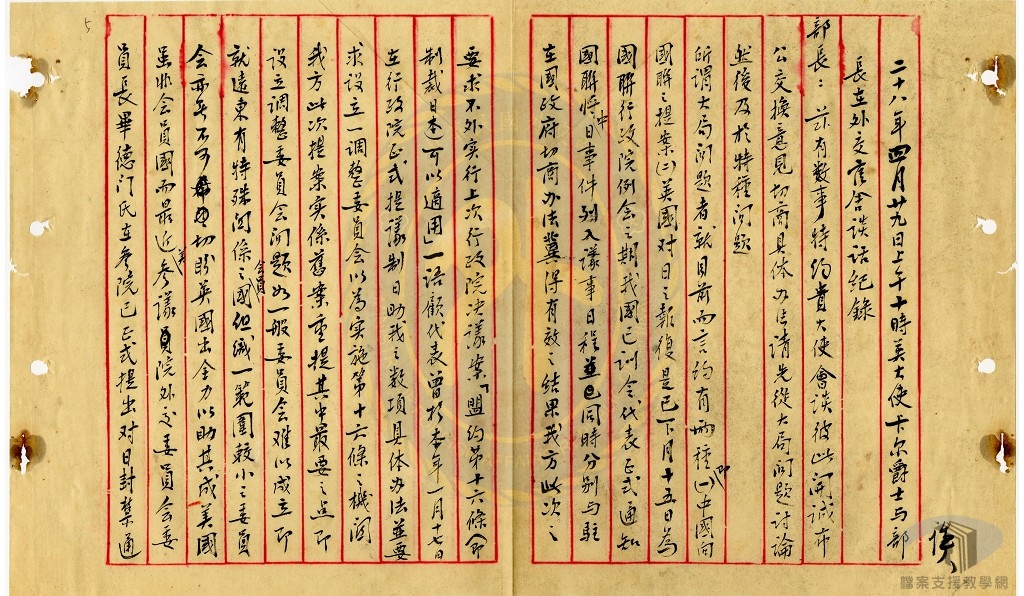 二十八年四月廿九日上午十時英大使卡尔爵士与部
長在外交官舍談话紀錄
部長：茲有数事特约貴大使會談彼此開誠布
公交換意見切商具体办法請先從大局问題讨論
然後及於特種问題
所謂大局问題者就目前而言约有兩種即(一)中國向
國聯之提案(二)英國对日之報復是已下月十五日为
國聯行政院例会之期我國已训令代表正式通知
國聯將中日事件列入議事日程並已同時分别与駐
在國政府切商办法冀得有效之结果我方此次之
要求不外实行上次行政院决議案「盟约第十六條(即
制裁日本)可以適用」一語顧代表曾於本年一月十七日
在行政院正式提議制日助我之数項具体办法並要
求设立一調整委員会以為实施第十六條之機関
我方此次提案实係舊案重提其中最要之点即
设立調整委員会问題如一般委員会难以成立即
就遠東有特殊関係之會員國组織一範圍較小之委員
会亦無不可切盼英國出全力以助其成美國
虽非会員國而最近美參議員院外交委員会委
員長畢德门氏在參院已正式提出对日封禁通
5
檔案支援教學網